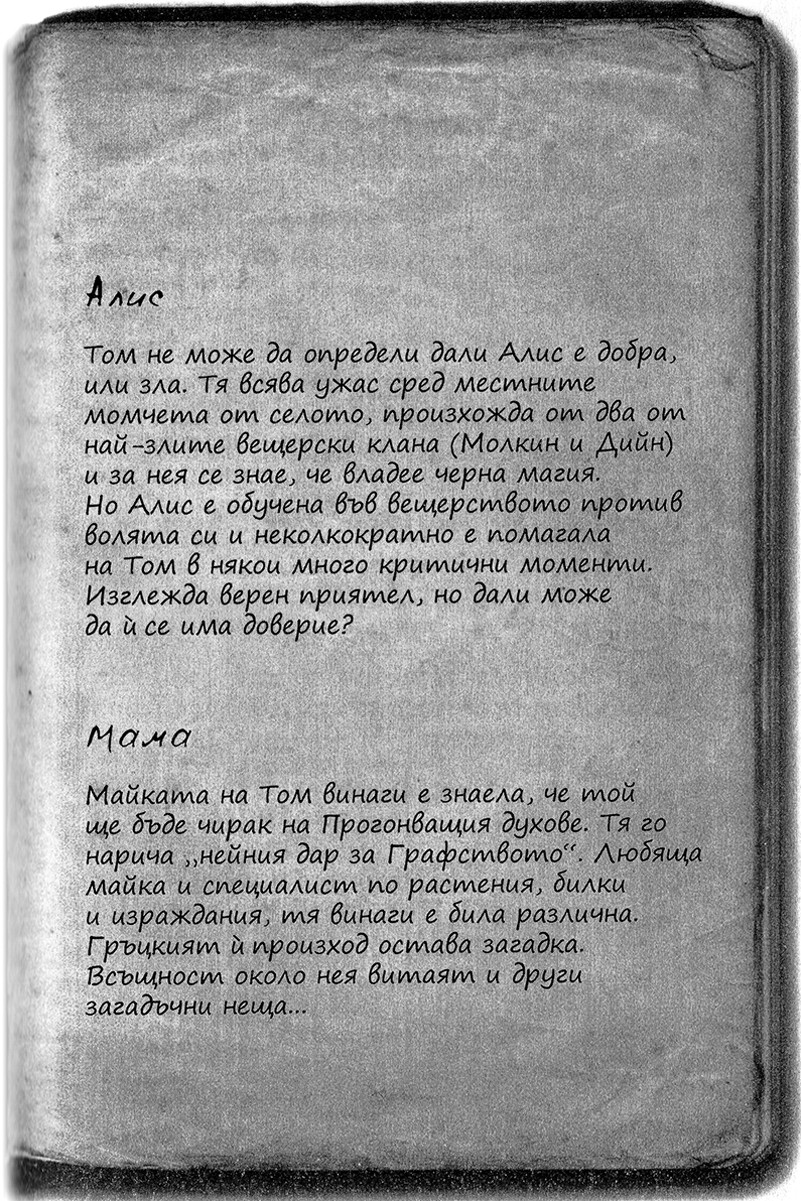 Алис
Том не може да определи дали Алис е добра,
или зла. Тя всява ужас сред местните
момчета от селото, произхожда от два от
най-злите вещерски клана (Молкин и Дийн)
и за нея се знае, че владее черна магия.
Но Алис е обучена във вещерството против
волята си и неколкократно е помагала
на Том в някои много критични моменти.
Изглежда верен приятел, но дали може
да ѝ се има доверие?
Мама
Майката на Том винаги е знаела, че той
ще бъде чирак на Прогонващия духове. Тя го
нарича „нейния дар за Графството“. Любяща
майка и специалист по растения, билки
и израждания, тя винаги е била различна.
Гръцкият ѝ произход остава загадка.
Всъщност около нея витаят и други
загадъчни неща...